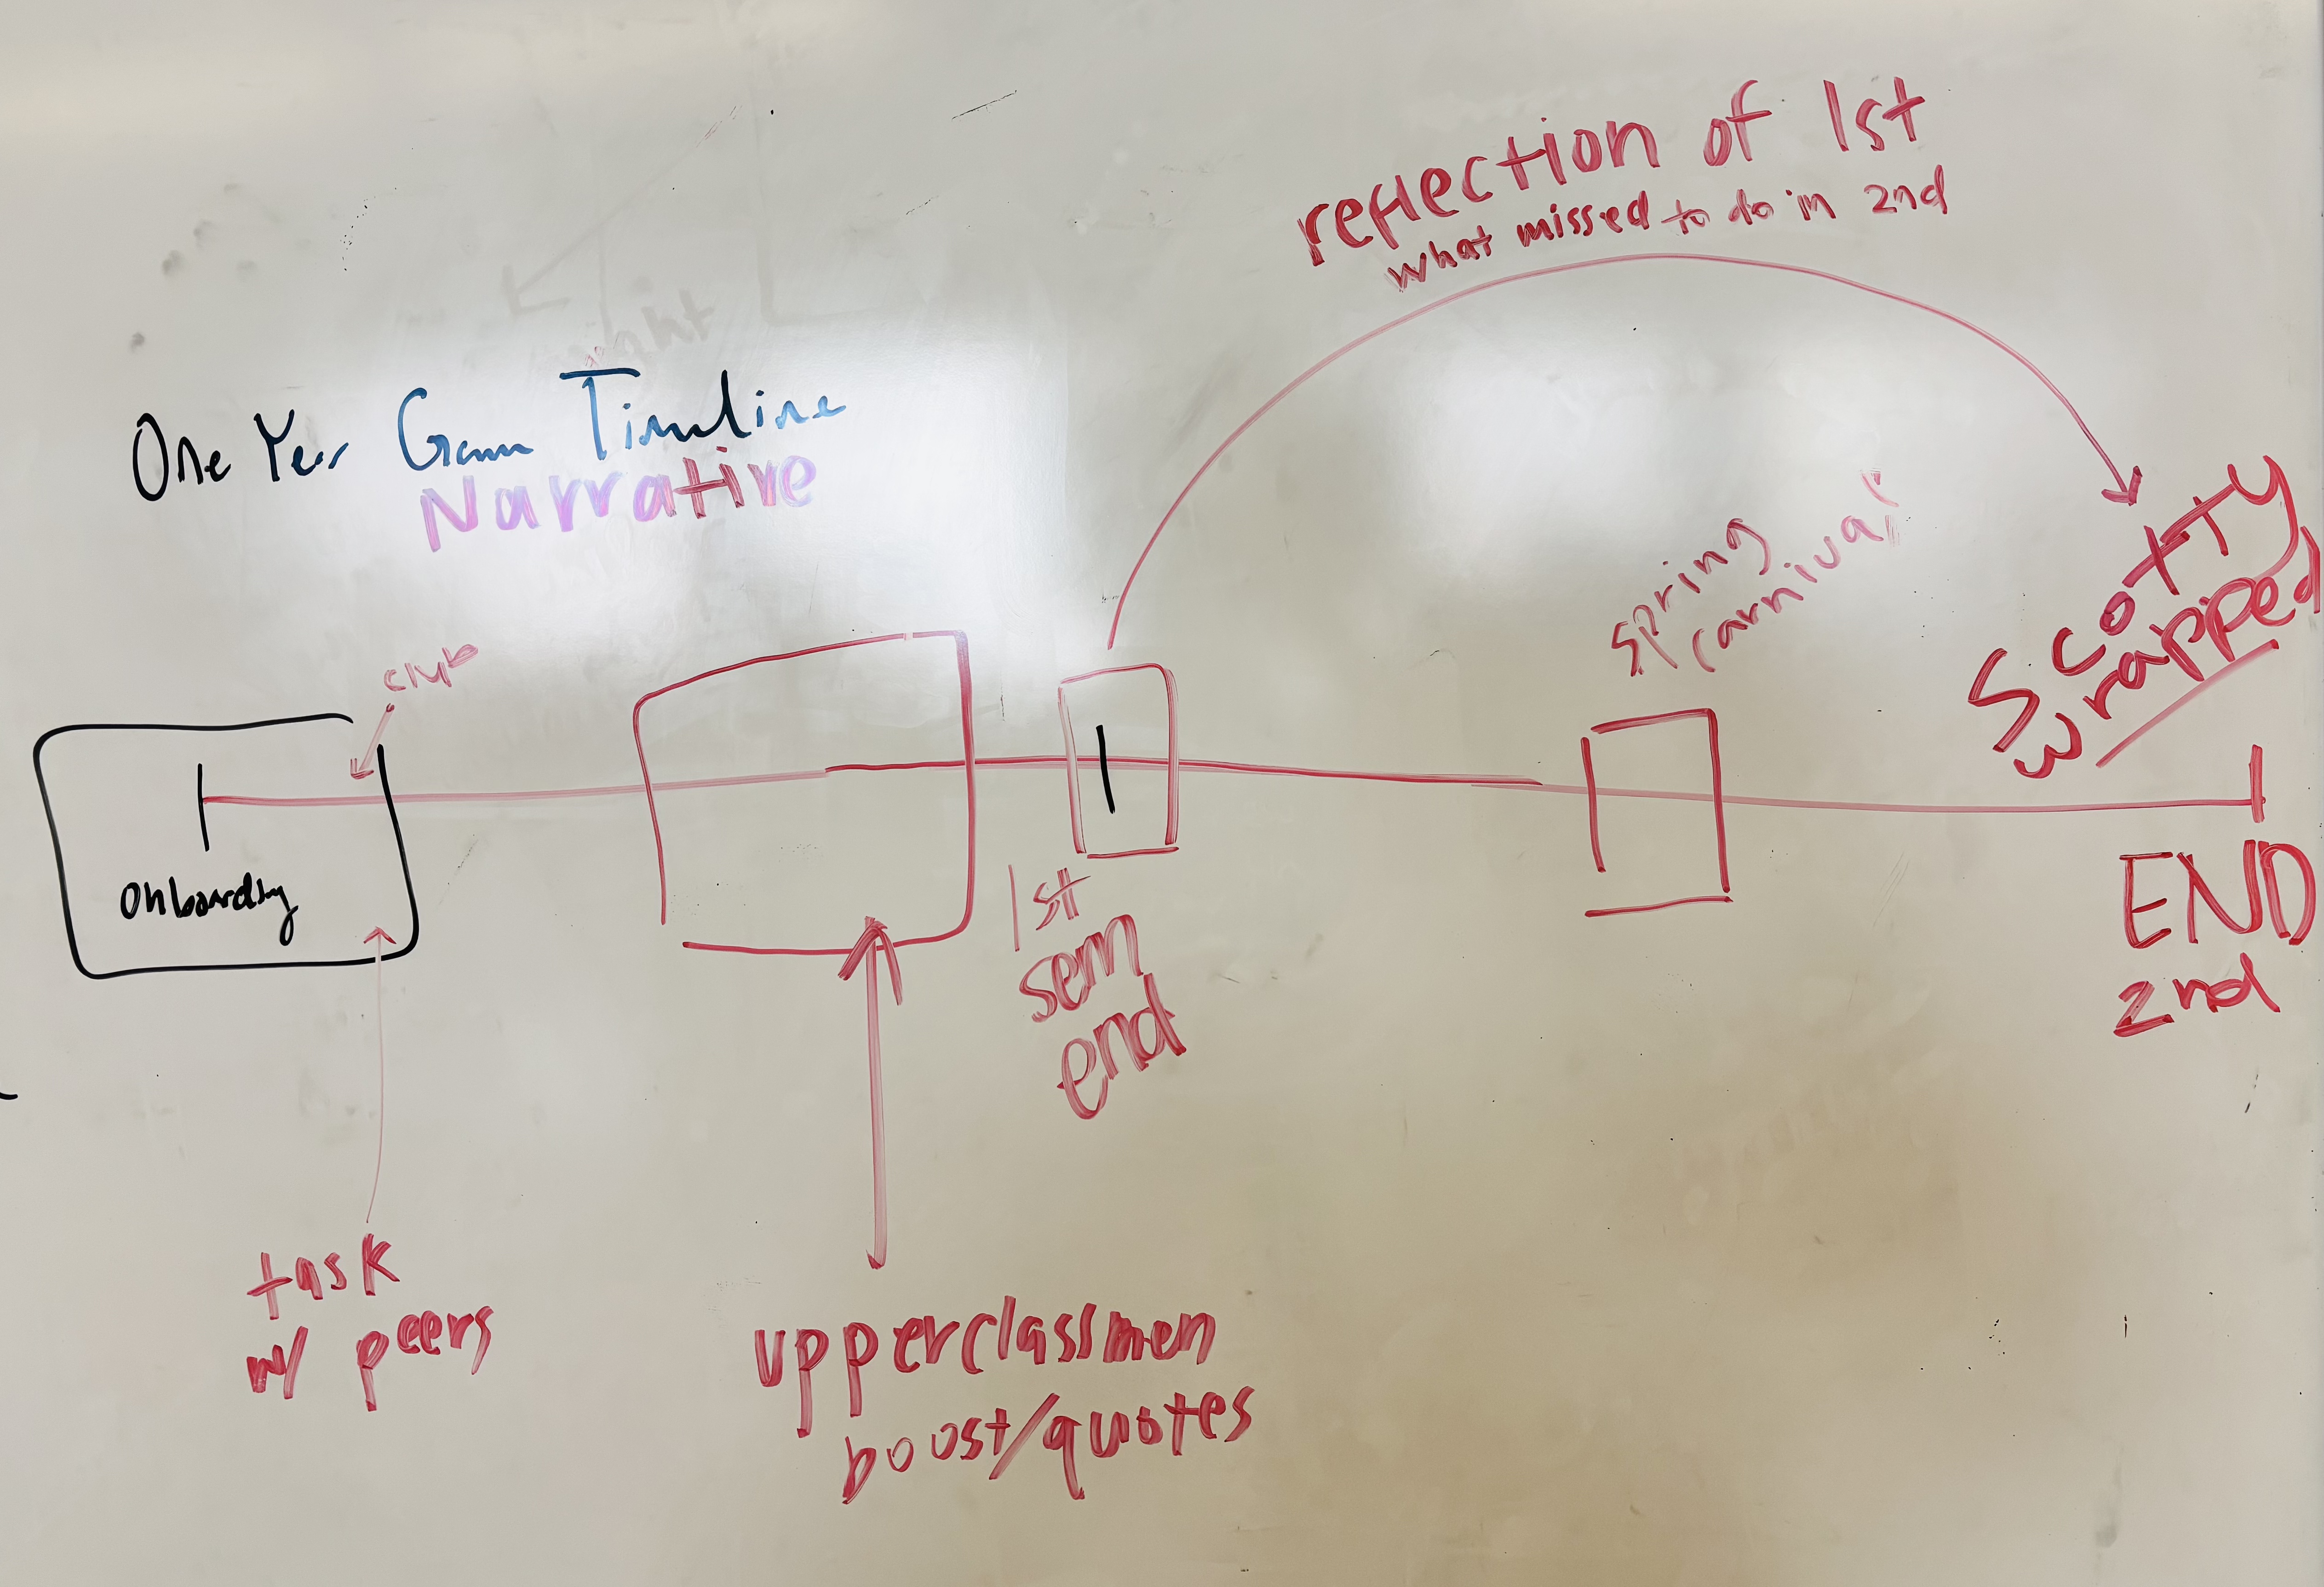 reflection of 1st
what missed to do in 2nd
One Year Game Timeline
Narrative
spring
carnival
scotty
wrapped
club
onboarding
1st
sem
end
END
2nd
task
w/ peers
upperclassmen
boost/quotes